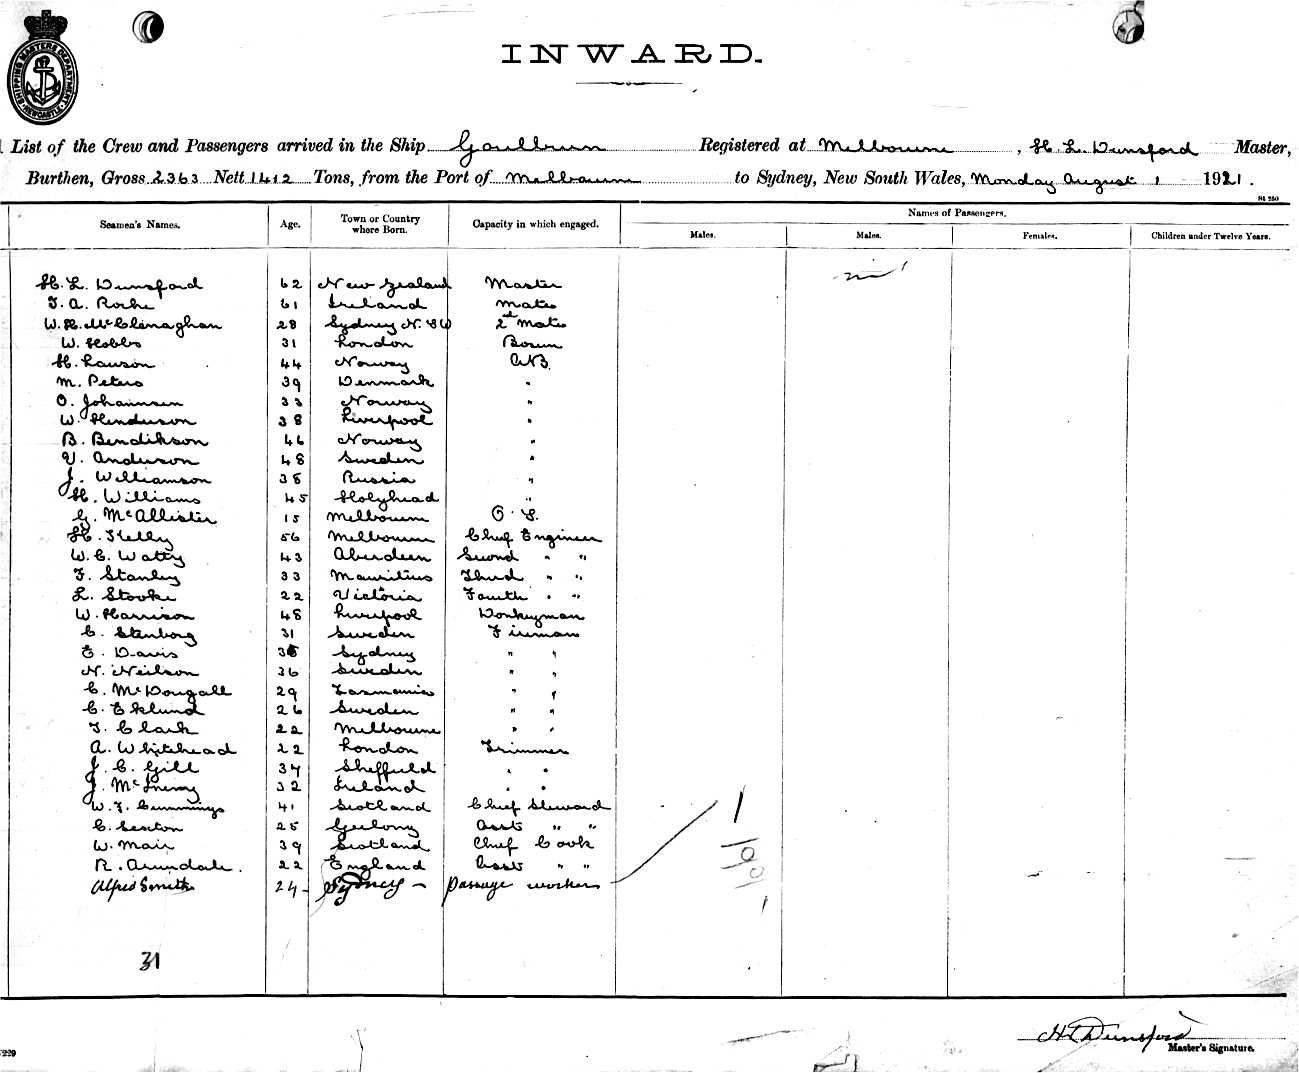 SHIPPING MASTERS DEPARTMENT NEWCASTLE
INWARD.
List of the Crew and Passengers arrived in the Ship Goulburn Registered at Melbourne, H. L. Dunsford Master,
Burthen, Gross 2363 Nett 1412 Tons, from the Port of Melbourne to Sydney, New South Wales, Monday August 1 1921.
St 250
Seamen's Names. Age. Town or Country where Born. Capacity in which engaged. Names of Passengers.
Males. Males. Females. Children under Twelve Years.
H. L. Dunsford 62 New Zealand Master nil
T. A. Roche 61 Ireland Mate
W. H. McClenaghan 28 Sydney N.SW 2nd Mate
W. Hobbs 31 London Bosun
H. Lauson 44 Norway AB.
M. Peters 39 Denmark "
O. Johannsen 33 Norway "
W. Henderson 38 Liverpool "
B. Bendikson 46 Norway "
V. Anderson 48 Sweden "
J. Williamson 38 Russia "
H. Williams 45 Holyhead "
G. McAllister 15 Melbourne O.S.
H. Kelly 56 Melbourne Chief Engineer
W. C. Watty 43 Aberdeen Second " "
F. Stanley 33 Mauritius Third " "
L. Stooke 22 Victoria Fourth " "
W. Harrison 48 Liverpool Donkeyman
C. Stenborg 31 Sweden Fireman
E. Davis 38 Sydney " "
N. Neilson 36 Sweden " "
C. McDougall 29 Tasmania " "
C. Eklund 26 Sweden " "
T. Clark 22 Melbourne " "
A. Whitehead 22 London Trimmer
J. C. Gill 34 Sheffield " "
J. McInerny 32 Ireland " "
W. J. Cummings 41 Scotland Chief Steward 1
C. Sexton 25 Geelong Asst " "
W. Mair 39 Scotland Chief Cook
R. Arundale. 22 England Asst " "
Alfred Smith 24 Sydney Passage worker
31
H L Dunsford
Master's Signature.